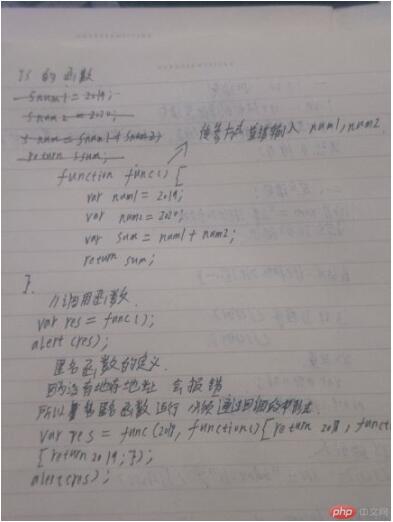 JS 的函数
$num1 = 2019;
$num2 = 2020;
$num = $num1 + $num2;
return $sum;
传参方式 直接输入 num1, num2
function func() {
var num1 = 2019;
var num2 = 2020;
var sum = num1 + num2;
return sum;
}
//调用函数
var res = func();
alert(res);
匿名函数的定义
因为没有 地址 会报错
所以 匿名函数运行 必须通过回调 形式
var res = func(2018, function() { return 2018, funct
{ return 2019; });
alert(res);
php 中文网